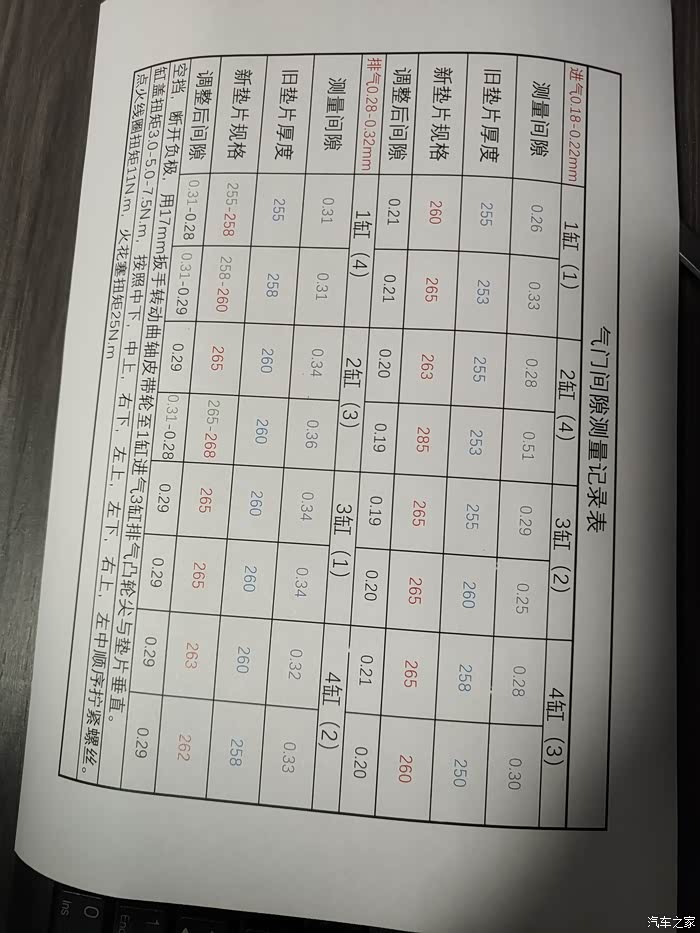 气门间隙测量记录表
进气0.18-0.22mm 1缸（1） 2缸（4） 3缸（2） 4缸（3）
测量间隙 0.26 0.33 0.28 0.51 0.29 0.25 0.28 0.30
旧垫片厚度 255 253 255 253 255 260 258 250
新垫片规格 260 265 263 285 265 265 265 260
调整后间隙 0.21 0.21 0.20 0.19 0.19 0.20 0.21 0.20
排气0.28-0.32mm 1缸（4） 2缸（3） 3缸（1） 4缸（2）
测量间隙 0.31 0.31 0.34 0.36 0.34 0.34 0.32 0.33
旧垫片厚度 255 258 260 260 260 260 260 258
新垫片规格 255-258 258-260 265 265-268 265 265 263 262
调整后间隙 0.31-0.28 0.31-0.29 0.29 0.31-0.28 0.29 0.29 0.29 0.29
空挡，断开负极，用17mm扳手转动曲轴皮带轮至1缸进气3缸排气凸轮尖与垫片垂直。
缸盖扭矩3.0-5.0-7.5N.m，按照中下，中上，右下，左上，左下，右上，左中顺序拧紧螺丝。
点火线圈扭矩11N.m，火花塞扭矩25N.m
0
Ins
1
End
汽车之家